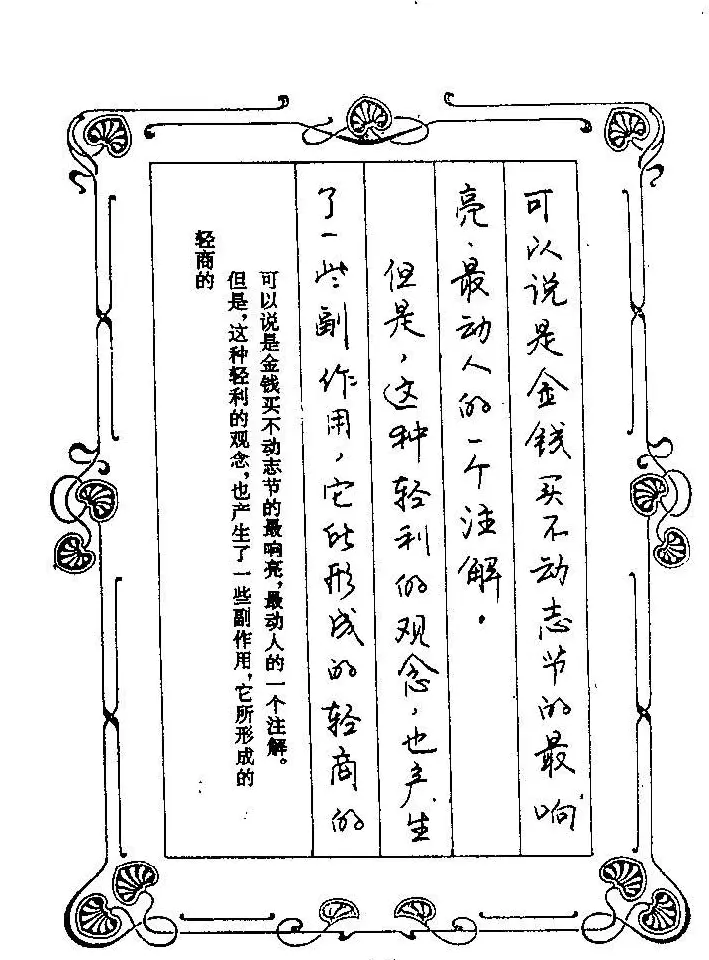 可以说是金钱买不动志节的最响
亮、最动人的一个注解.
但是,这种轻利的观念,也产生
了一些副作用,它所形成的轻商的
可以说是金钱买不动志节的最响亮,最动人的一个注解。
但是,这种轻利的观念,也产生了一些副作用,它所形成的
轻商的